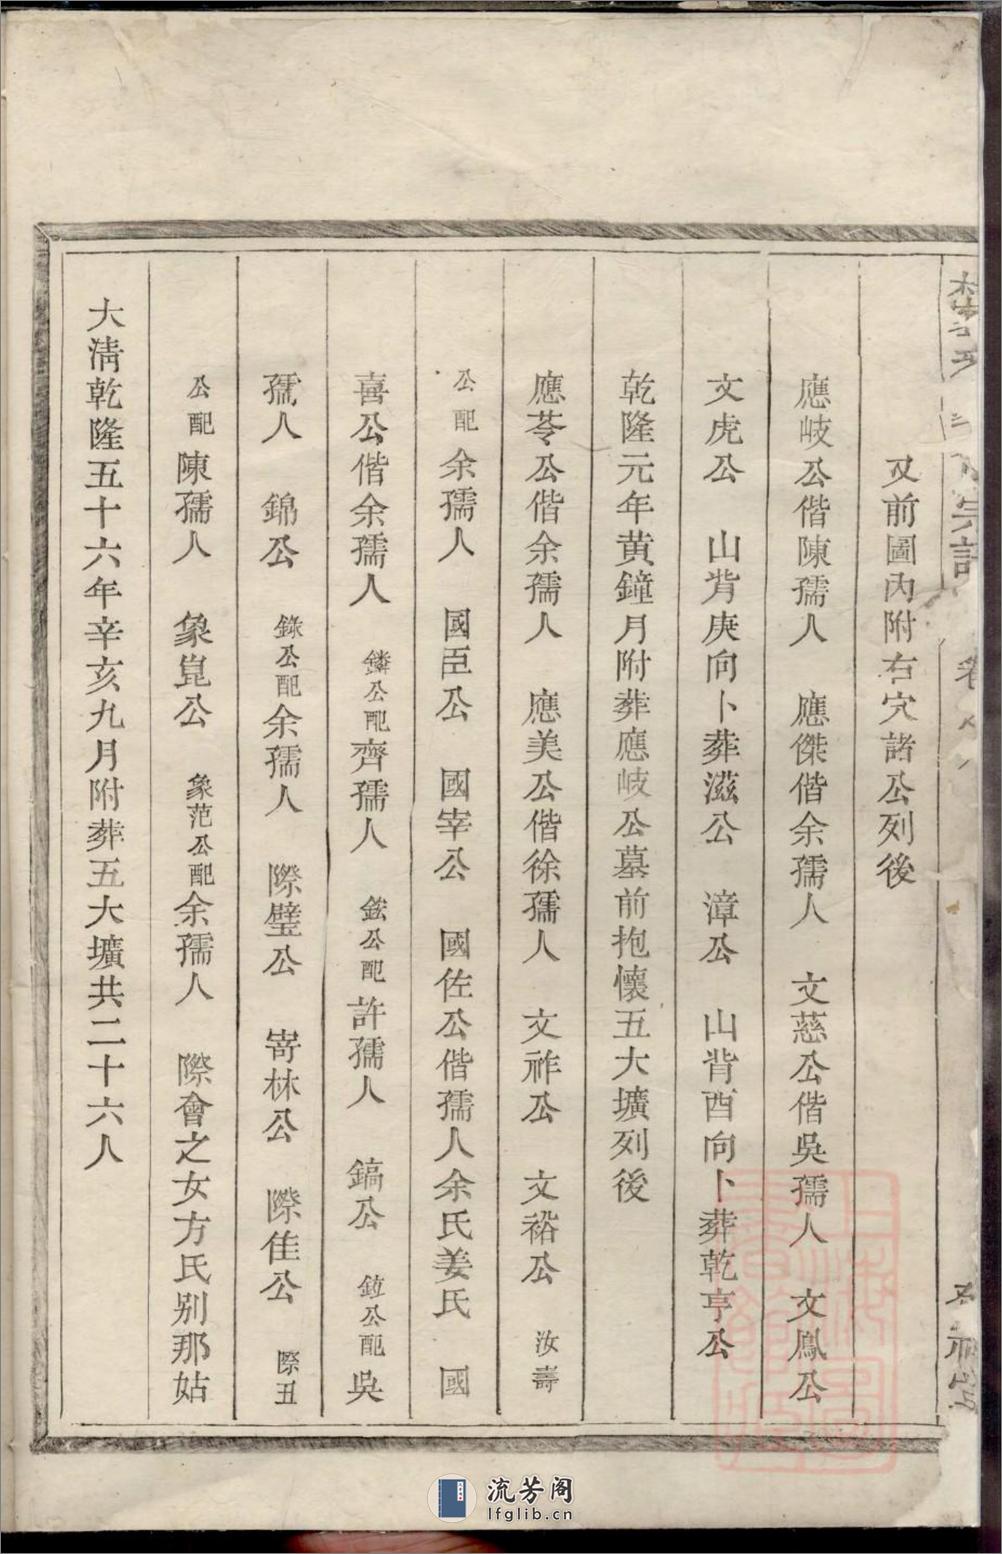 又前圖內附右穴諸公列後
應岐公偕陳孺人　應傑偕余孺人　文慈公偕吳孺人　文鳳公
文虎公　山背庚向卜葬滋公　漳公　山背酉向卜葬乾亨公
乾隆元年黄鐘月附葬應岐公墓前抱懷五大壙列後
應苓公偕余孺人　應美公偕徐孺人　文祚公　文裕公　汝壽
公配余孺人　國臣公　國宰公　國佐公偕孺人余氏姜氏　國
喜公偕余孺人　鏻公配齊孺人　鉉公配許孺人　鎬公　鉝公配吳
孺人　錦公　錄公配余孺人　際璧公　嵜林公　際佳公　際丑
公配陳孺人　象崑公　象范公配余孺人　際會之女方氏别那姑
大淸乾隆五十六年辛亥九月附葬五大壙共二十六人
流芳阁
lfglib.cn